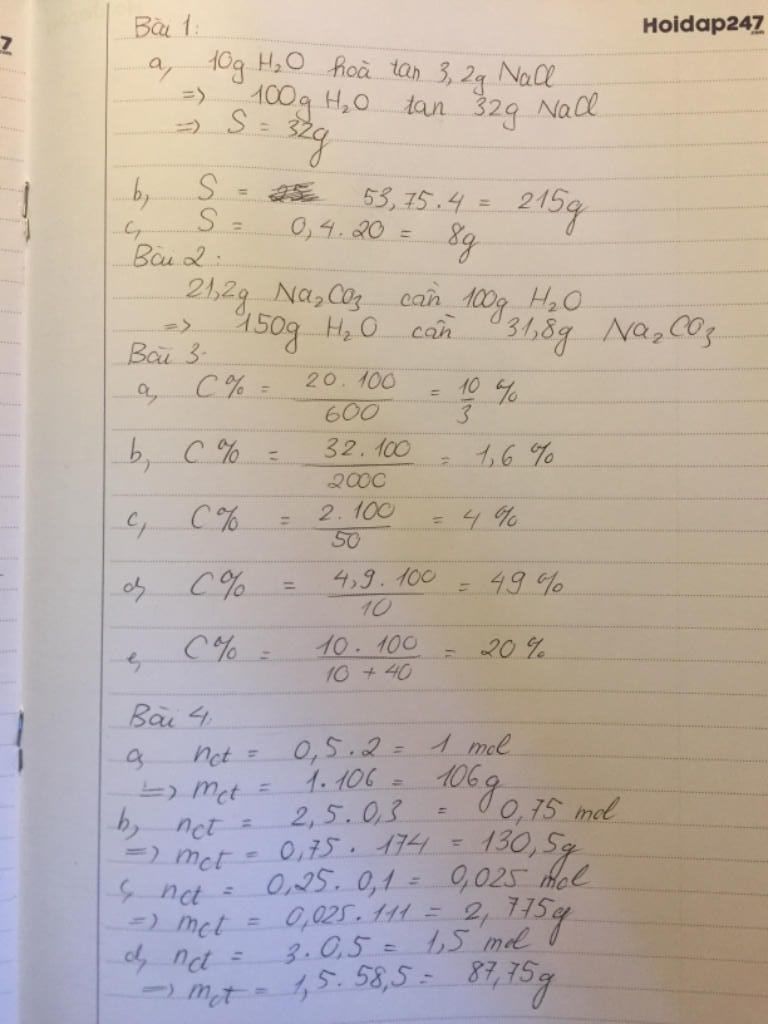 Hoidap247
.com
7
Bài 1:
a, 10g H₂O hoà tan 3,2g NaCl
=> 100g H₂O tan 32g NaCl
=> S = 32g
b, S = 53,75.4 = 215g
c, S = 0,4.20 = 8g
Bài 2:
21,2g Na₂CO₃ cần 100g H₂O
=> 150g H₂O cần 31,8g Na₂CO₃
Bài 3.
a, C% = 20.100/600 = 10/3 %
b, C% = 32.100/2000 = 1,6 %
c, C% = 2.100/50 = 4 %
d, C% = 4,9.100/10 = 49 %
e, C% = 10.100/10 + 40 = 20 %
Bài 4.
a, nct = 0,5.2 = 1 mol
=> mct = 1.106 = 106g
b, nct = 2,5.0,3 = 0,75 mol
=> mct = 0,75.174 = 130,5g
c, nct = 0,25.0,1 = 0,025 mol
=> mct = 0,025.111 = 2,775g
d, nct = 3.0,5 = 1,5 mol
=> mct = 1,5.58,5 = 87,75g